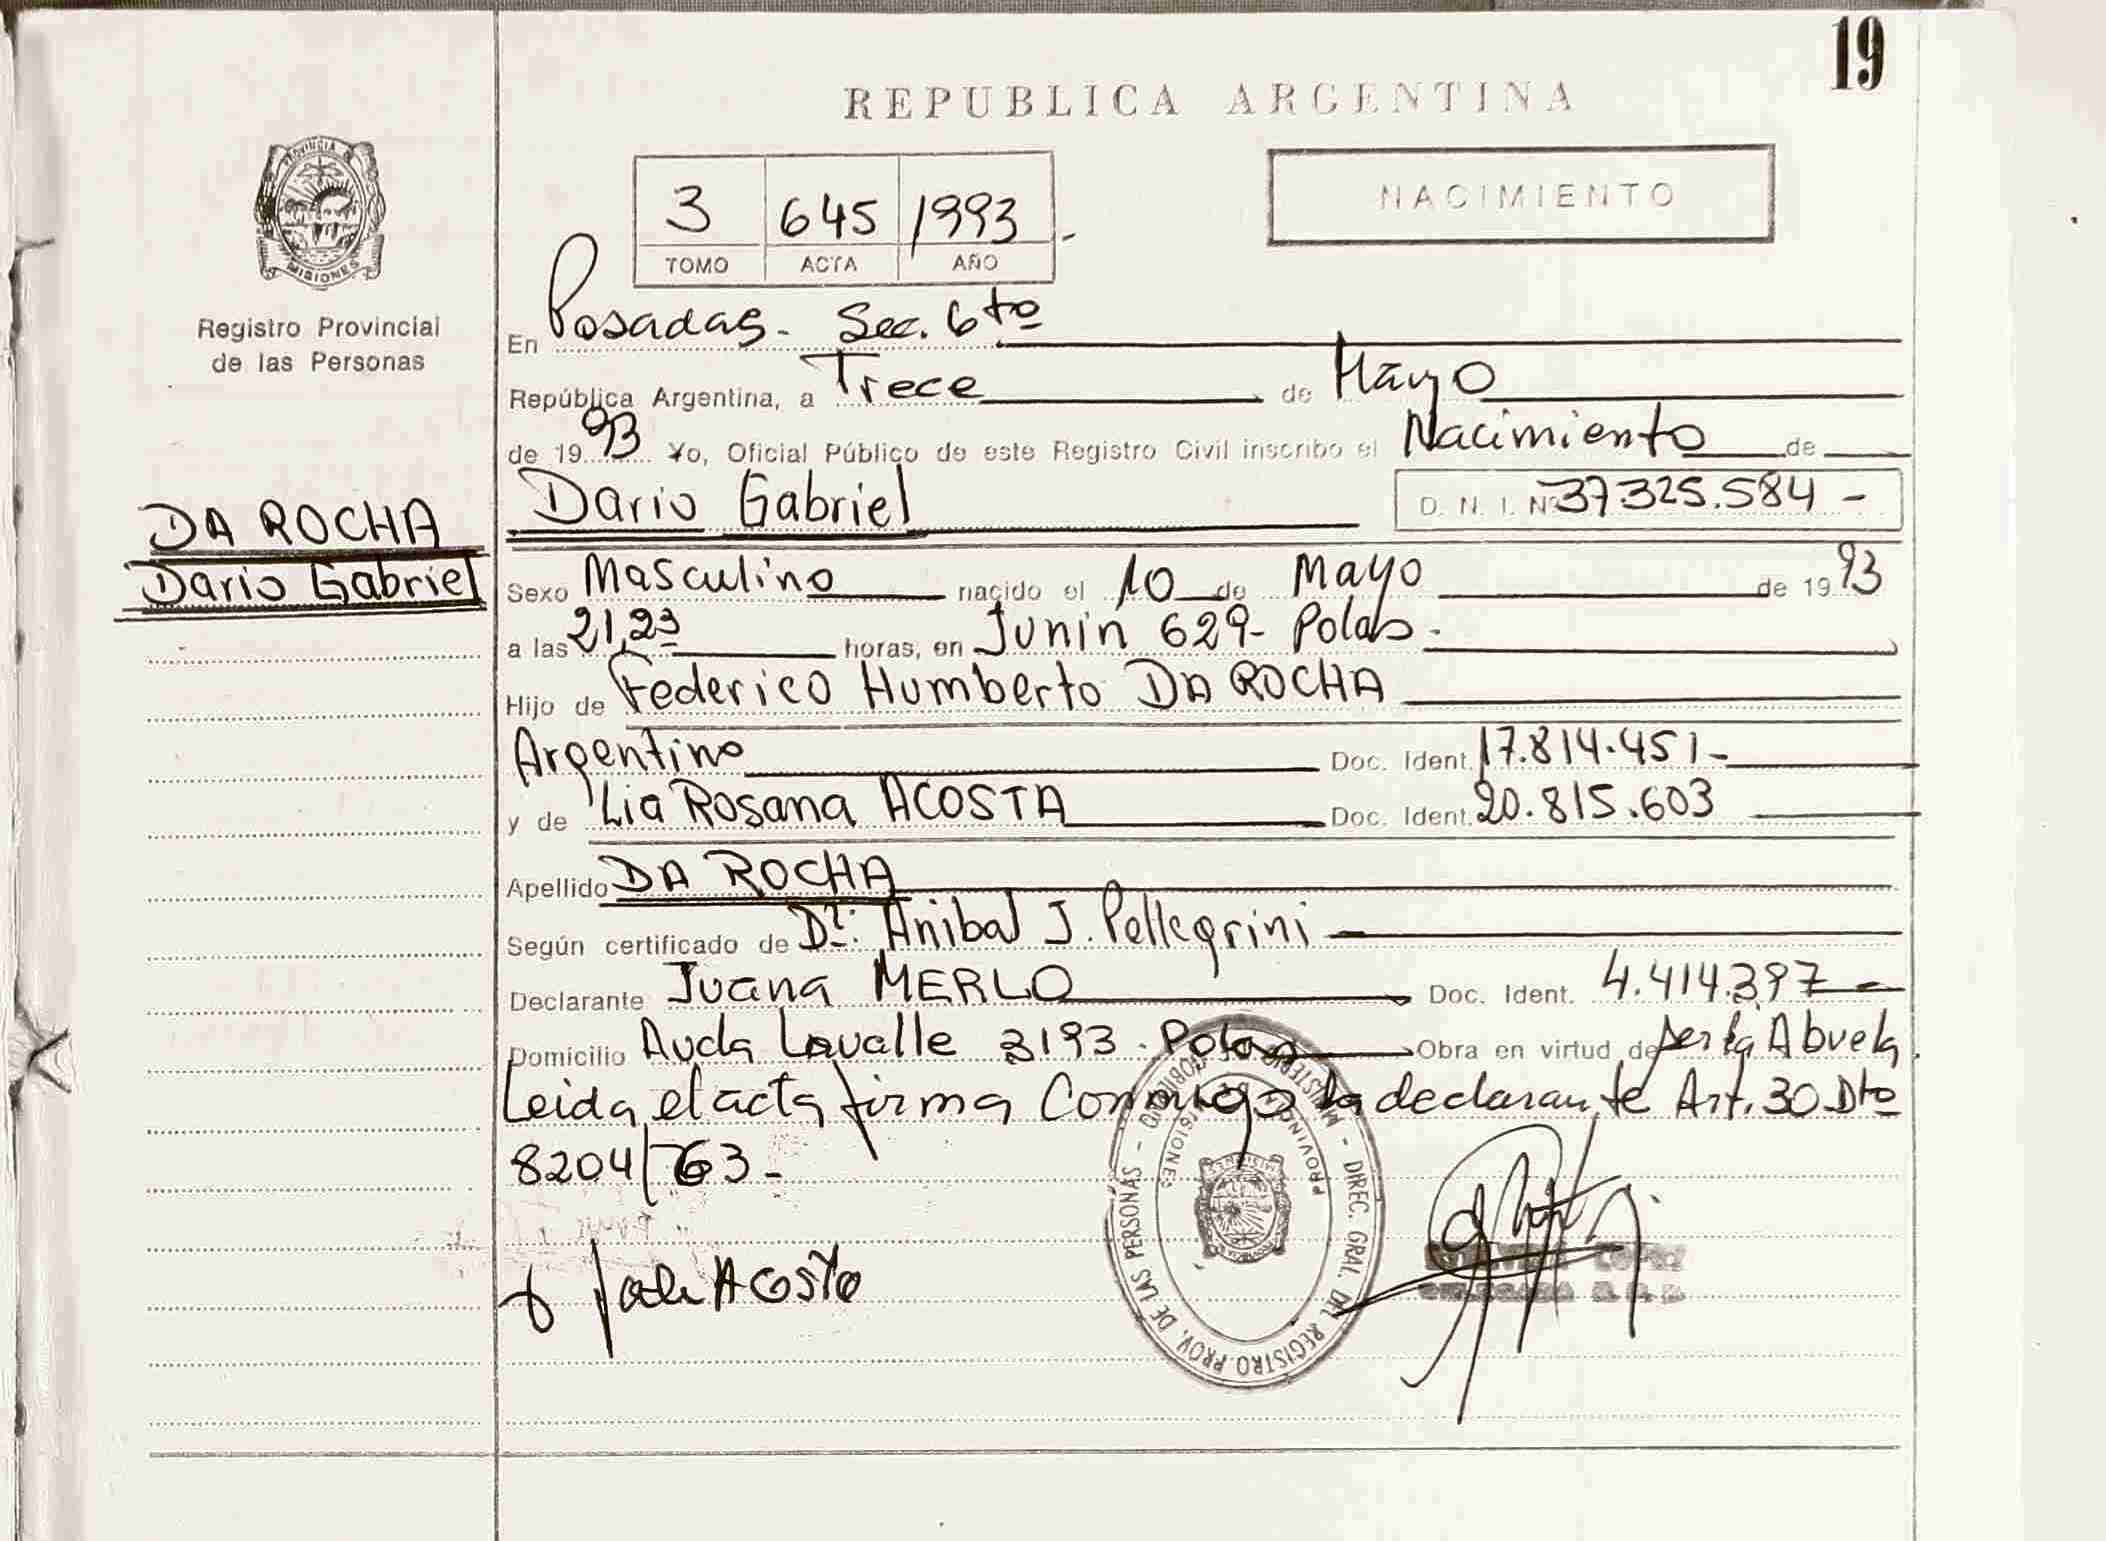 19
REPUBLICA ARGENTINA
NACIMIENTO
3 645 1993
TOMO ACTA AÑO
PROVINCIA DE
MISIONES
Registro Provincial
de las Personas
En Posadas - Sec. 6to
República Argentina, a Trece de Mayo
de 1993 Yo, Oficial Público de este Registro Civil inscribo el Nacimiento de
DA ROCHA
Dario Gabriel
Dario Gabriel D. N. I. Nº 37325.584 -
Sexo Masculino nacido el 10 de Mayo de 1993
a las 21,23 horas, en Junin 629- Pdas -
Hijo de Federico Humberto DA ROCHA
Argentino Doc. Ident. 17.814.451 -
y de Lia Rosana ACOSTA Doc. Ident. 20.815.603
Apellido DA ROCHA
Según certificado de Dr: Anibal J. Pellegrini
Declarante Juana MERLO Doc. Ident. 4.414.397 -
Domicilio Avda Lavalle 3193 - Pdas Obra en virtud de ser la Abuela.
Leida el acta firma Conmigo la declarante Art. 30 Dto
8204/763 -
DIREC. GRAL. DEL REGISTRO PROV. DE LAS PERSONAS - MINISTERIO DE GOBIERNO -
PROVINCIA DE MISIONES
ACOSTA